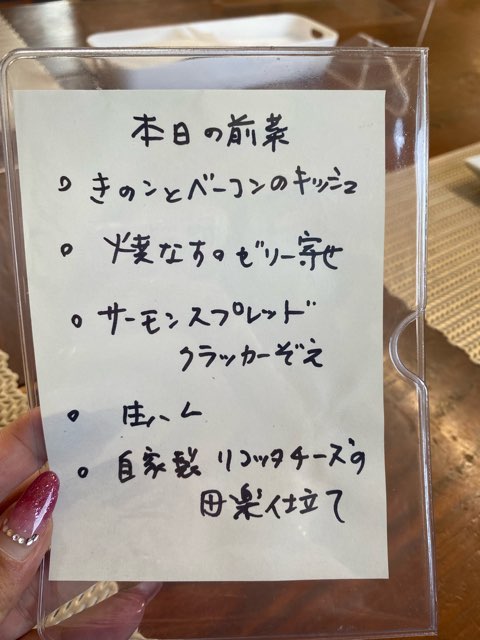 本日の前菜
○ きのことベーコンのキッシュ
○ 焼なすのゼリー寄せ
○ サーモンスプレッド
クラッカーぞえ
○ 生ハム
○ 自家製 リコッタチーズの
田楽仕立て